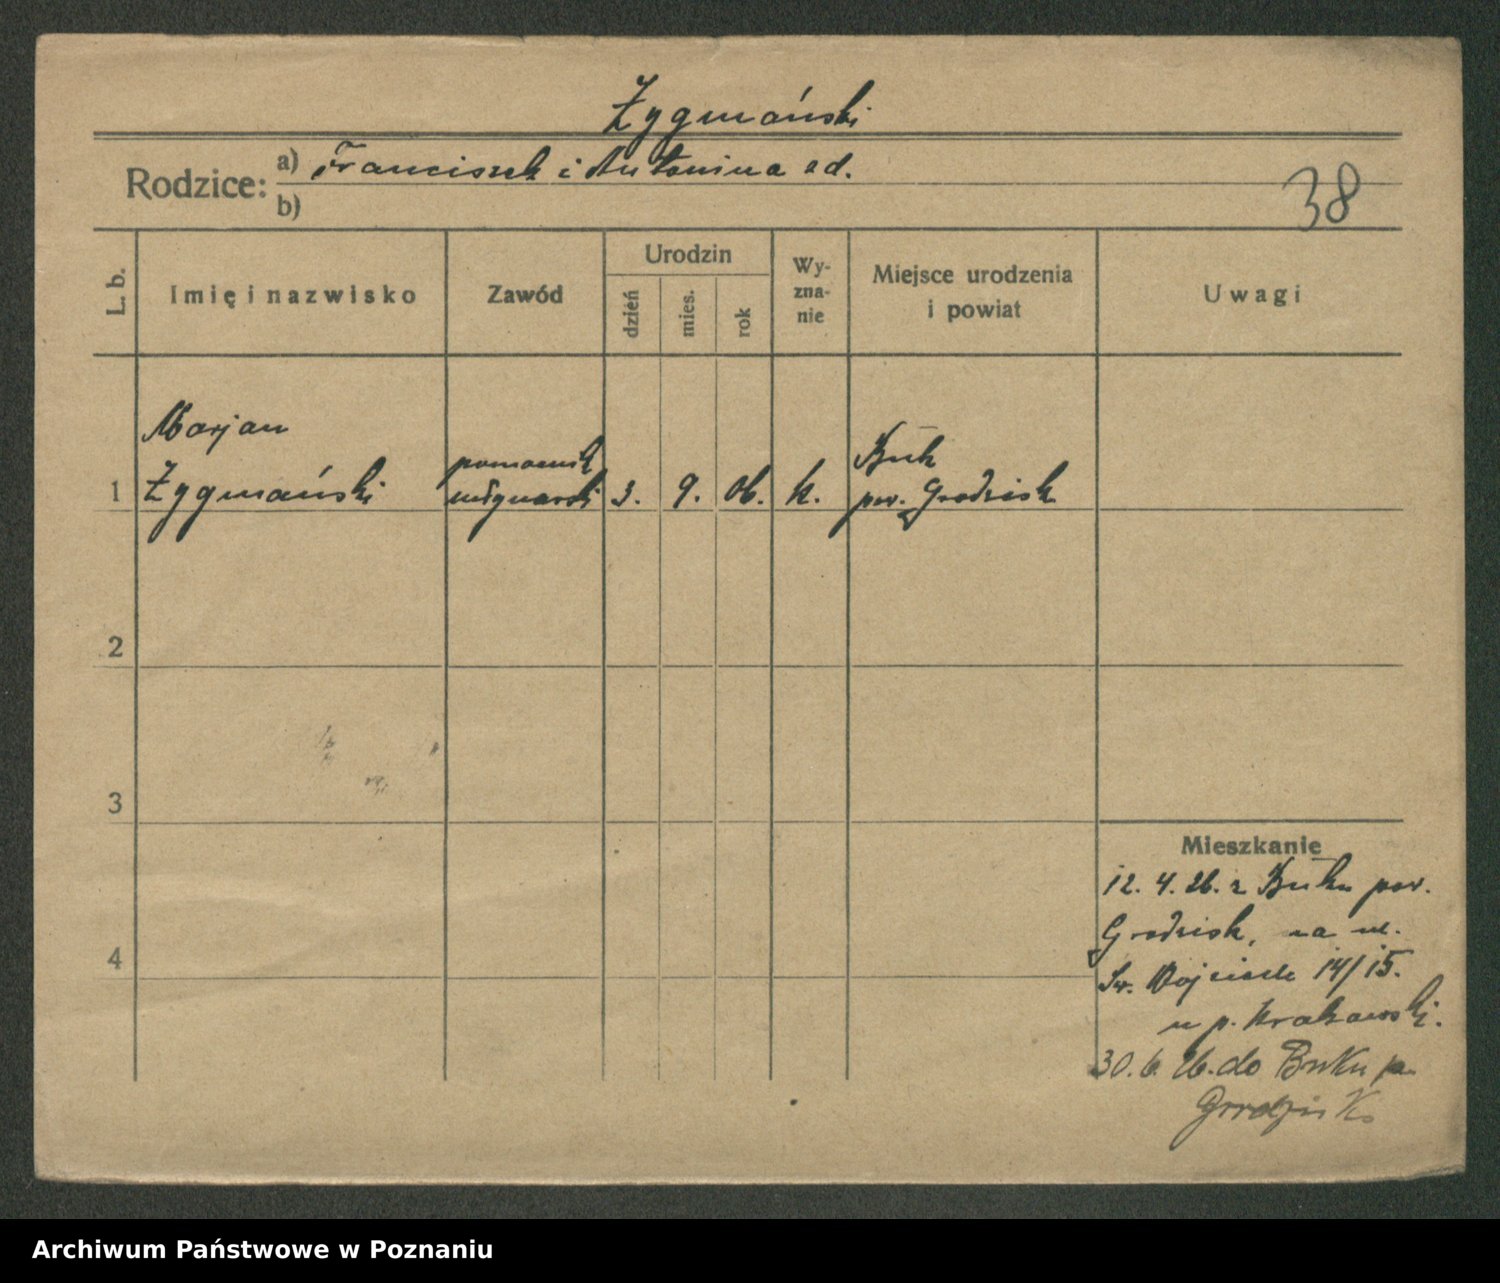 Zygmański
Rodzice: a) Franciszek i Antonina ad.
b)
38
L. b.
Imię i nazwisko
Zawód
Urodzin
dzień
mies.
rok
Wy-
zna-
nie
Miejsce urodzenia
i powiat
Uwagi
Marjan
Zygmański
pomocnik
młynarski
1
3. 9. 06. k.
Buk
pow. Grodzisk
2
3
4
Mieszkanie
12. 4. 26. z Buku pow.
Grodzisk, na ul.
Św. Wojciech 14/15.
u p. Krakowski.
30. 6. 26. do Buku
Archiwum Państwowe w Poznaniu